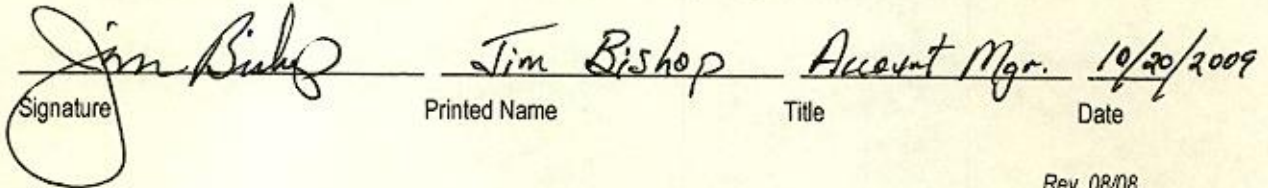 Jim Bishop Jim Bishop Account Mgr. 10/20/2009
Signature Printed Name Title Date
Rev. 08/08